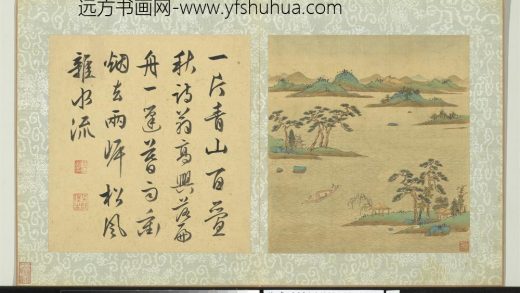 远方书画网-www.yfshuhua.com
一片青山百疊
秋詩翁高興落扁
舟一蓬暮雨
烟去兩岸松風
雜水流